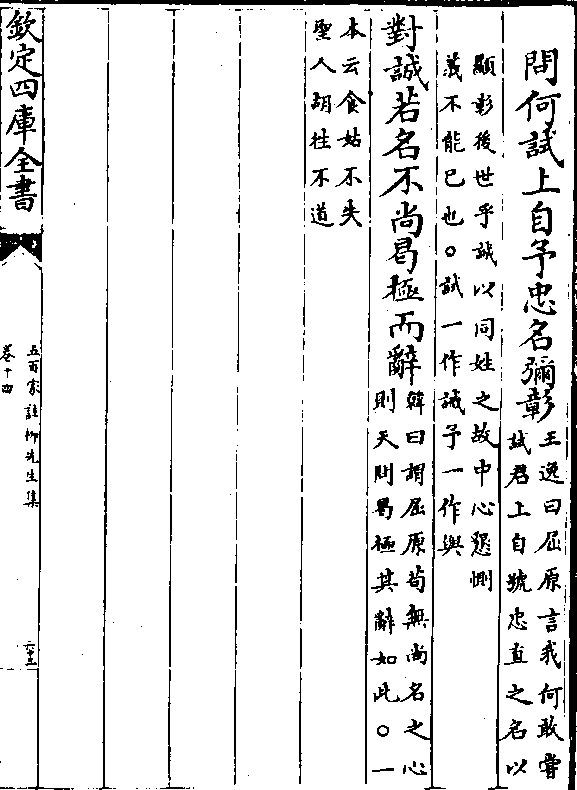 問何試上自予忠名彌彰王逸曰屈原言我何敢嘗
試君上自號忠直之名以
顯彰後世乎誠以同姓之故中心懇惻
義不能已也○試一作誡予一作與
對誠若名不尚曷極而辭韓曰謂屈原苟無尚名之心
則天問曷極其辭如此○一
本云食姑不失
聖人胡往不道
欽定四庫全書
五百家註柳先生集
卷十四